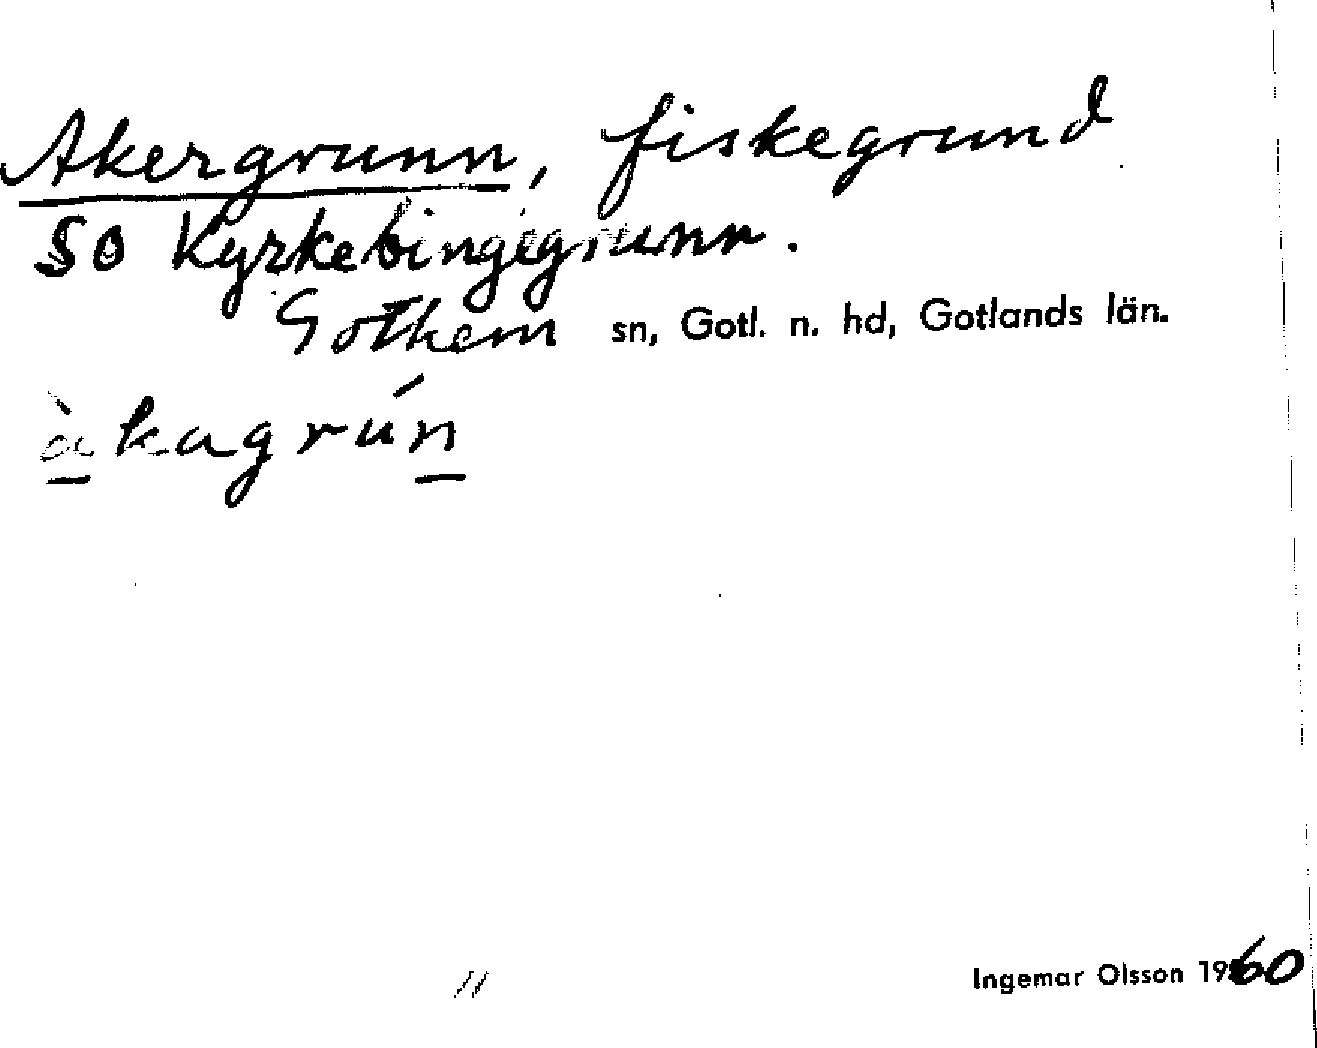 Akergrunn, fiskegrund
SO Kyrkebingegrunn.
Gothem sn, Gotl. n. hd, Gotlands län.
àkagrún
Ingemar Olsson 1960